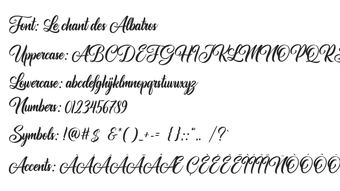 Font: Le chant des Albatros
Uppercase: ABCDEFGHIJKLMNOPQRS
Lowercase: abcdefghijklmnopqrstuvwxyz
Numbers: 0123456789
Symbols: !@#$ &*()_+-= {};:",. /?`
Accents: ÀÁÂÃÄÅÆ ÇÈÉÊËÌÍÎÏÑÒÓÔÕ